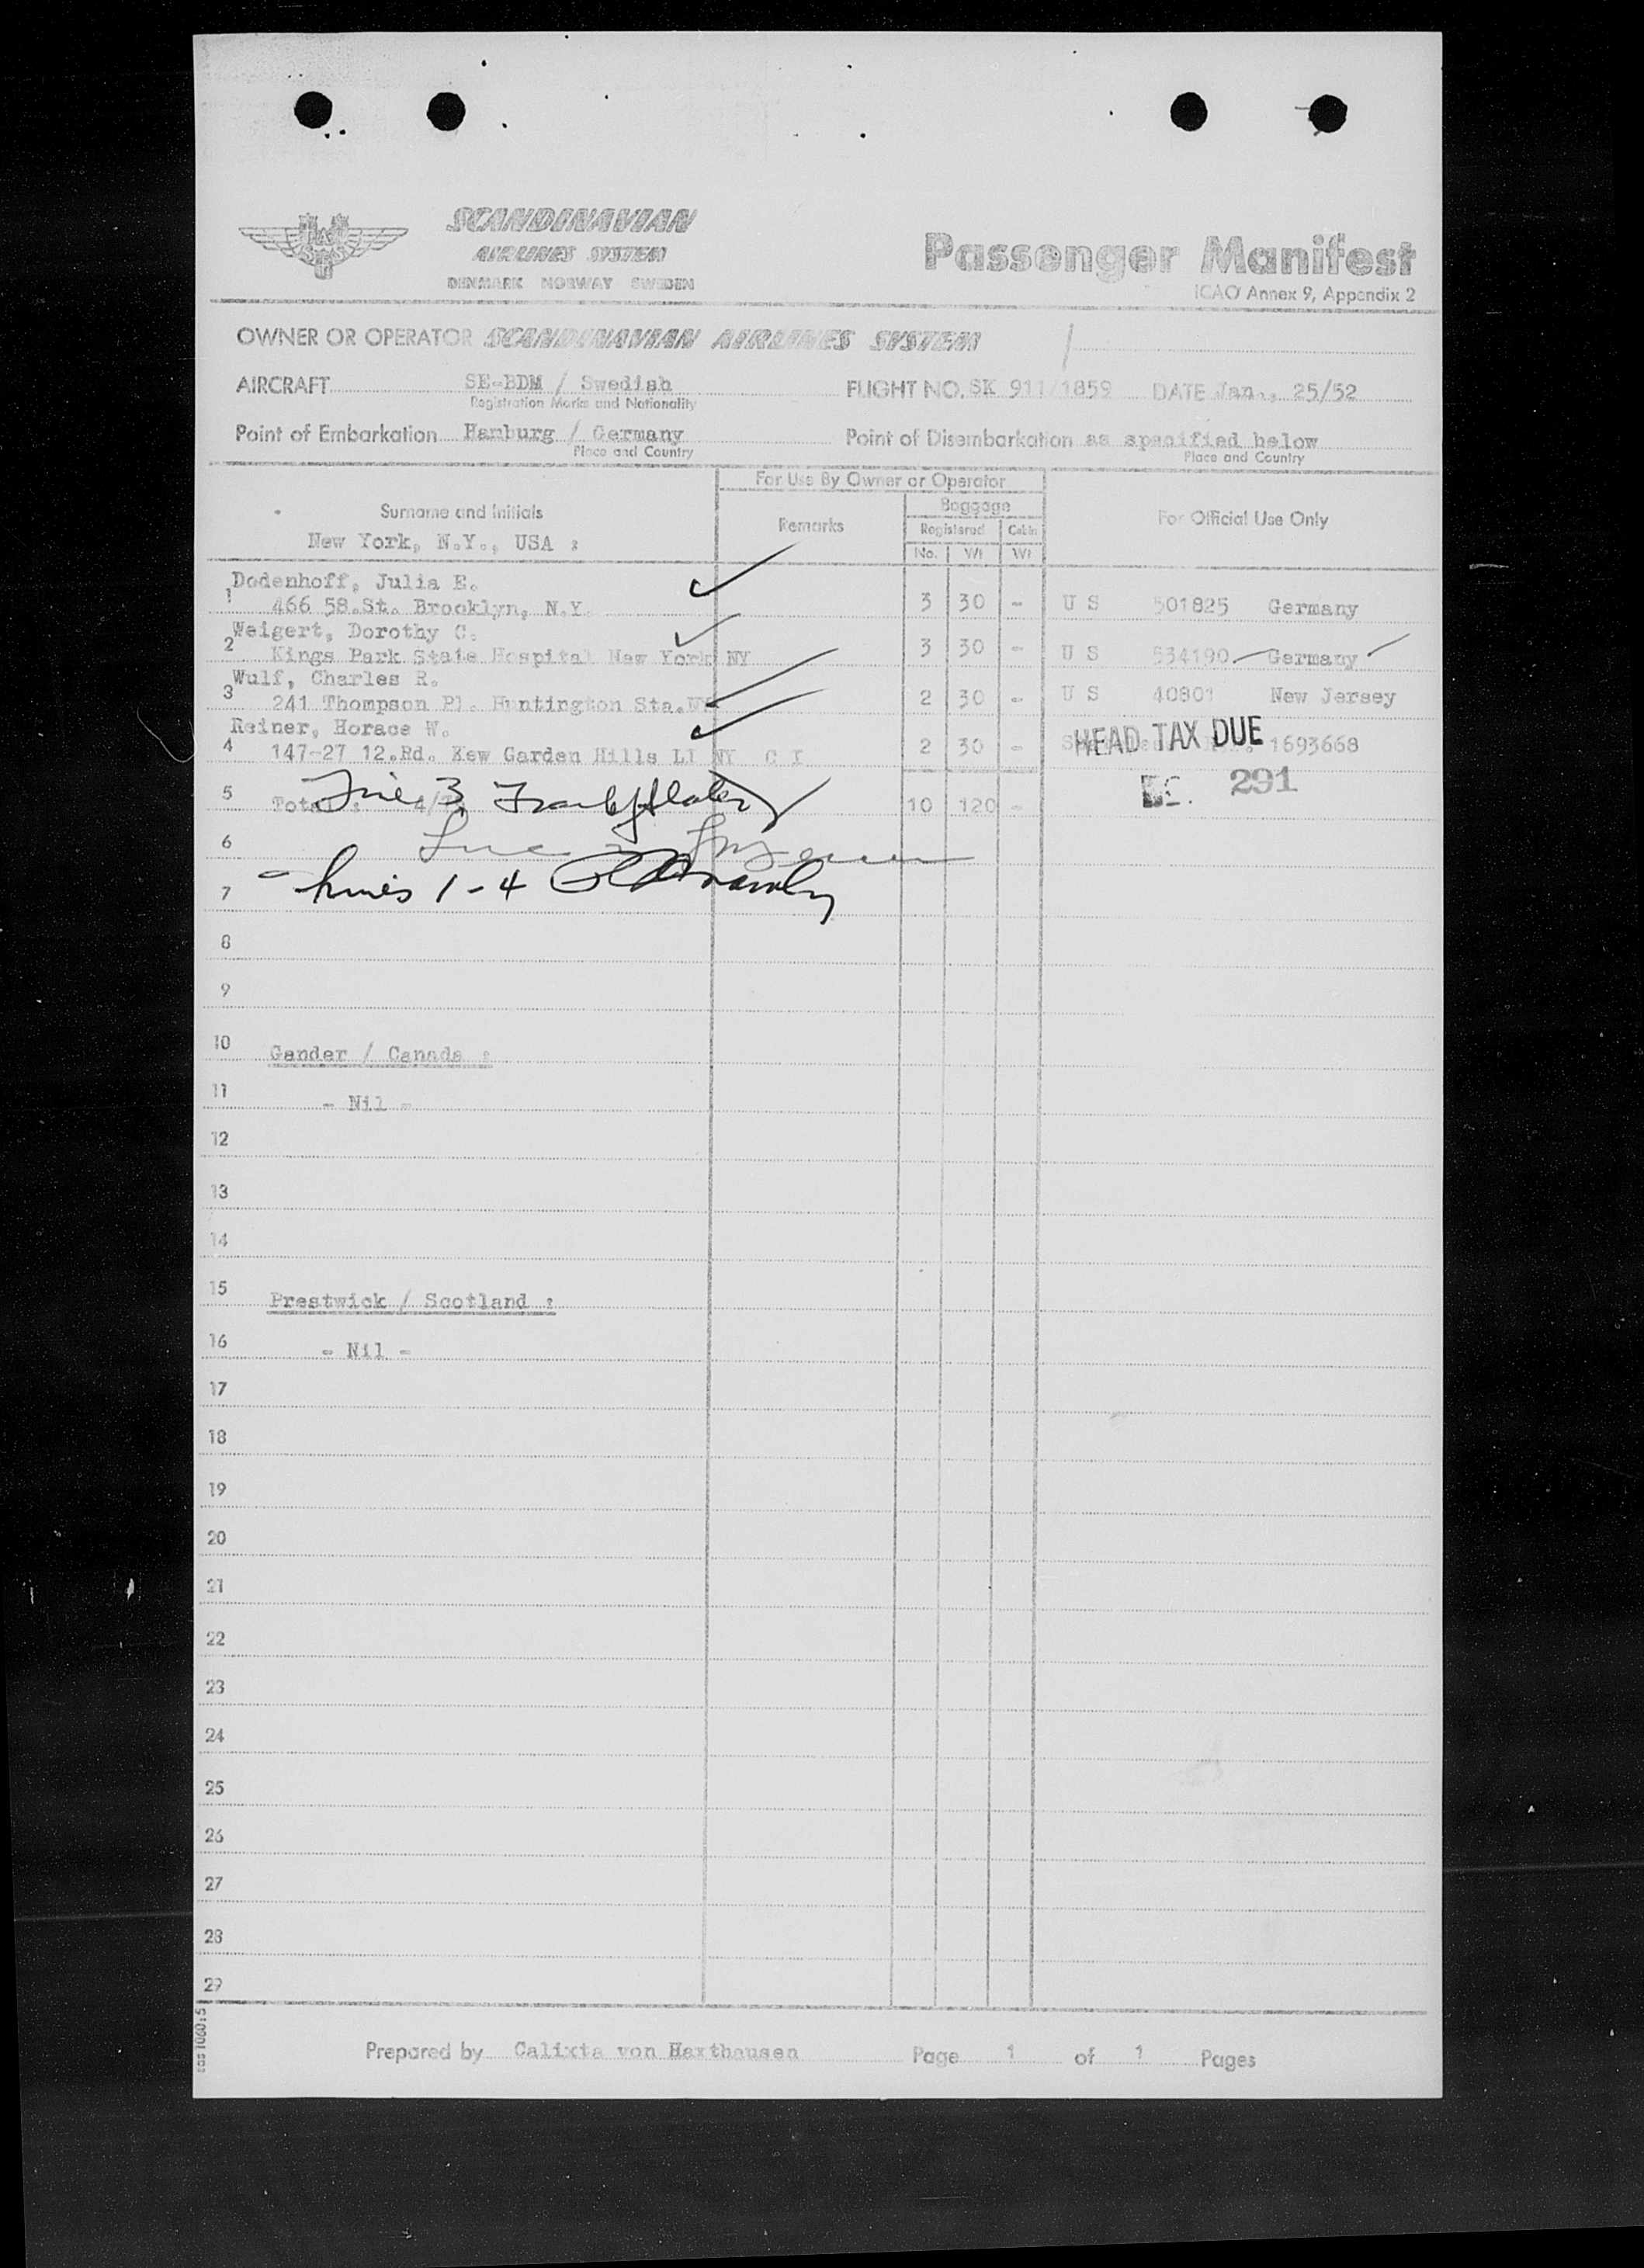 SCANDINAVIAN
AIRLINES SYSTEM
DENMARK NORWAY SWEDEN
Passenger Manifest
ICAO Annex 9, Appendix 2
OWNER OR OPERATOR SCANDINAVIAN AIRLINES SYSTEM
AIRCRAFT SE-BDM / Swedish FLIGHT NO. SK 911/1859 DATE Jan., 25/52
Registration Marks and Nationality
Point of Embarkation Hamburg / Germany Point of Disembarkation as specified below
Place and Country Place and Country
For Use By Owner or Operator
Surname and Initials Remarks Baggage For Official Use Only
Registered Cabin
New York, N.Y., USA :
No. Wt Wt
Dodenhoff, Julia E.
1 466 58.St. Brooklyn, N.Y. 3 30 - U S 501825 Germany
Weigert, Dorothy C.
2 Kings Park State Hospital New York NY 3 30 - U S 534190 Germany
Wulf, Charles R.
3 241 Thompson Pl. Huntington Sta.NY 2 30 - U S 40801 New Jersey
Reiner, Horace W.
4 147-27 12.Rd. Kew Garden Hills LI NY C I 2 30 - 1693668
HEAD TAX DUE
291
5 Total : 10 120 -
Line 3
6
7 Lines 1-4
8
9
10 Gander / Canada :
11 - Nil -
12
13
14
15 Prestwick / Scotland :
16 - Nil -
17
18
19
20
21
22
23
24
25
26
27
28
29
sas 1060:5
Prepared by Calixta von Haxthausen Page 1 of 1 Pages